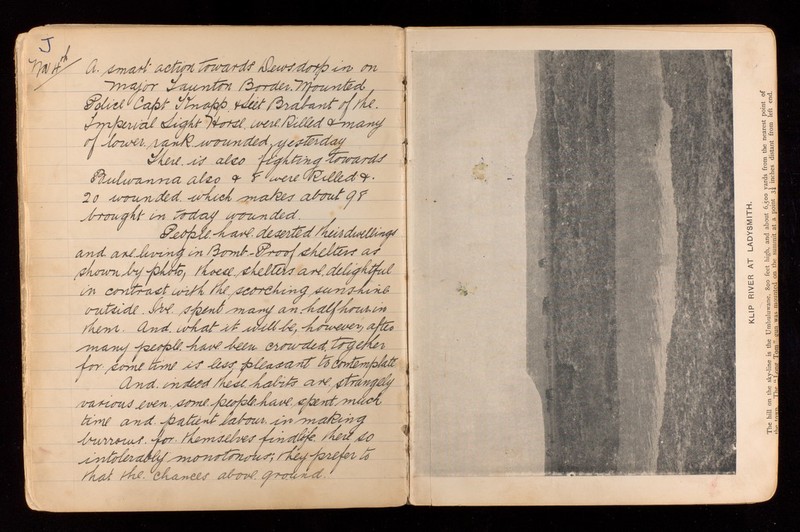 J
Nov 4th
A. smart action towards Dewsdorp in on
Major Taunton Border. Mounted
Police Capt Knapp & Brabant of the.
Imperial Light Horse, were killed & many
of lower rank wounded, yesterday
There is also fighting towards
Bulwanna also & 8 were killed &.
20 wounded which makes about 98
brought in today wounded.
People have deserted their dwellings
and are living in Bomb-Proof shelters as
shown by photo, these shelters are delightful
in contrast with the scorching sunshine
outside. I've spent many an half hour in
them. And what it will be, however, after
many people have been crowded together
for some time is less pleasant to contemplate
And indeed these habits are strangely
various even some people have spent much
time and patient labour in making
burrows. for themselves find life there so
intolerably monotonous, they prefer to
that the chances above ground.
KLIP RIVER AT LADYSMITH.
The hill on the sky-line is the Umbulwane, 800 feet high, and about 6,500 yards from the nearest point of
the town. The "Long Tom" gun was mounted on the summit at a point 3¼ inches distant from left end.